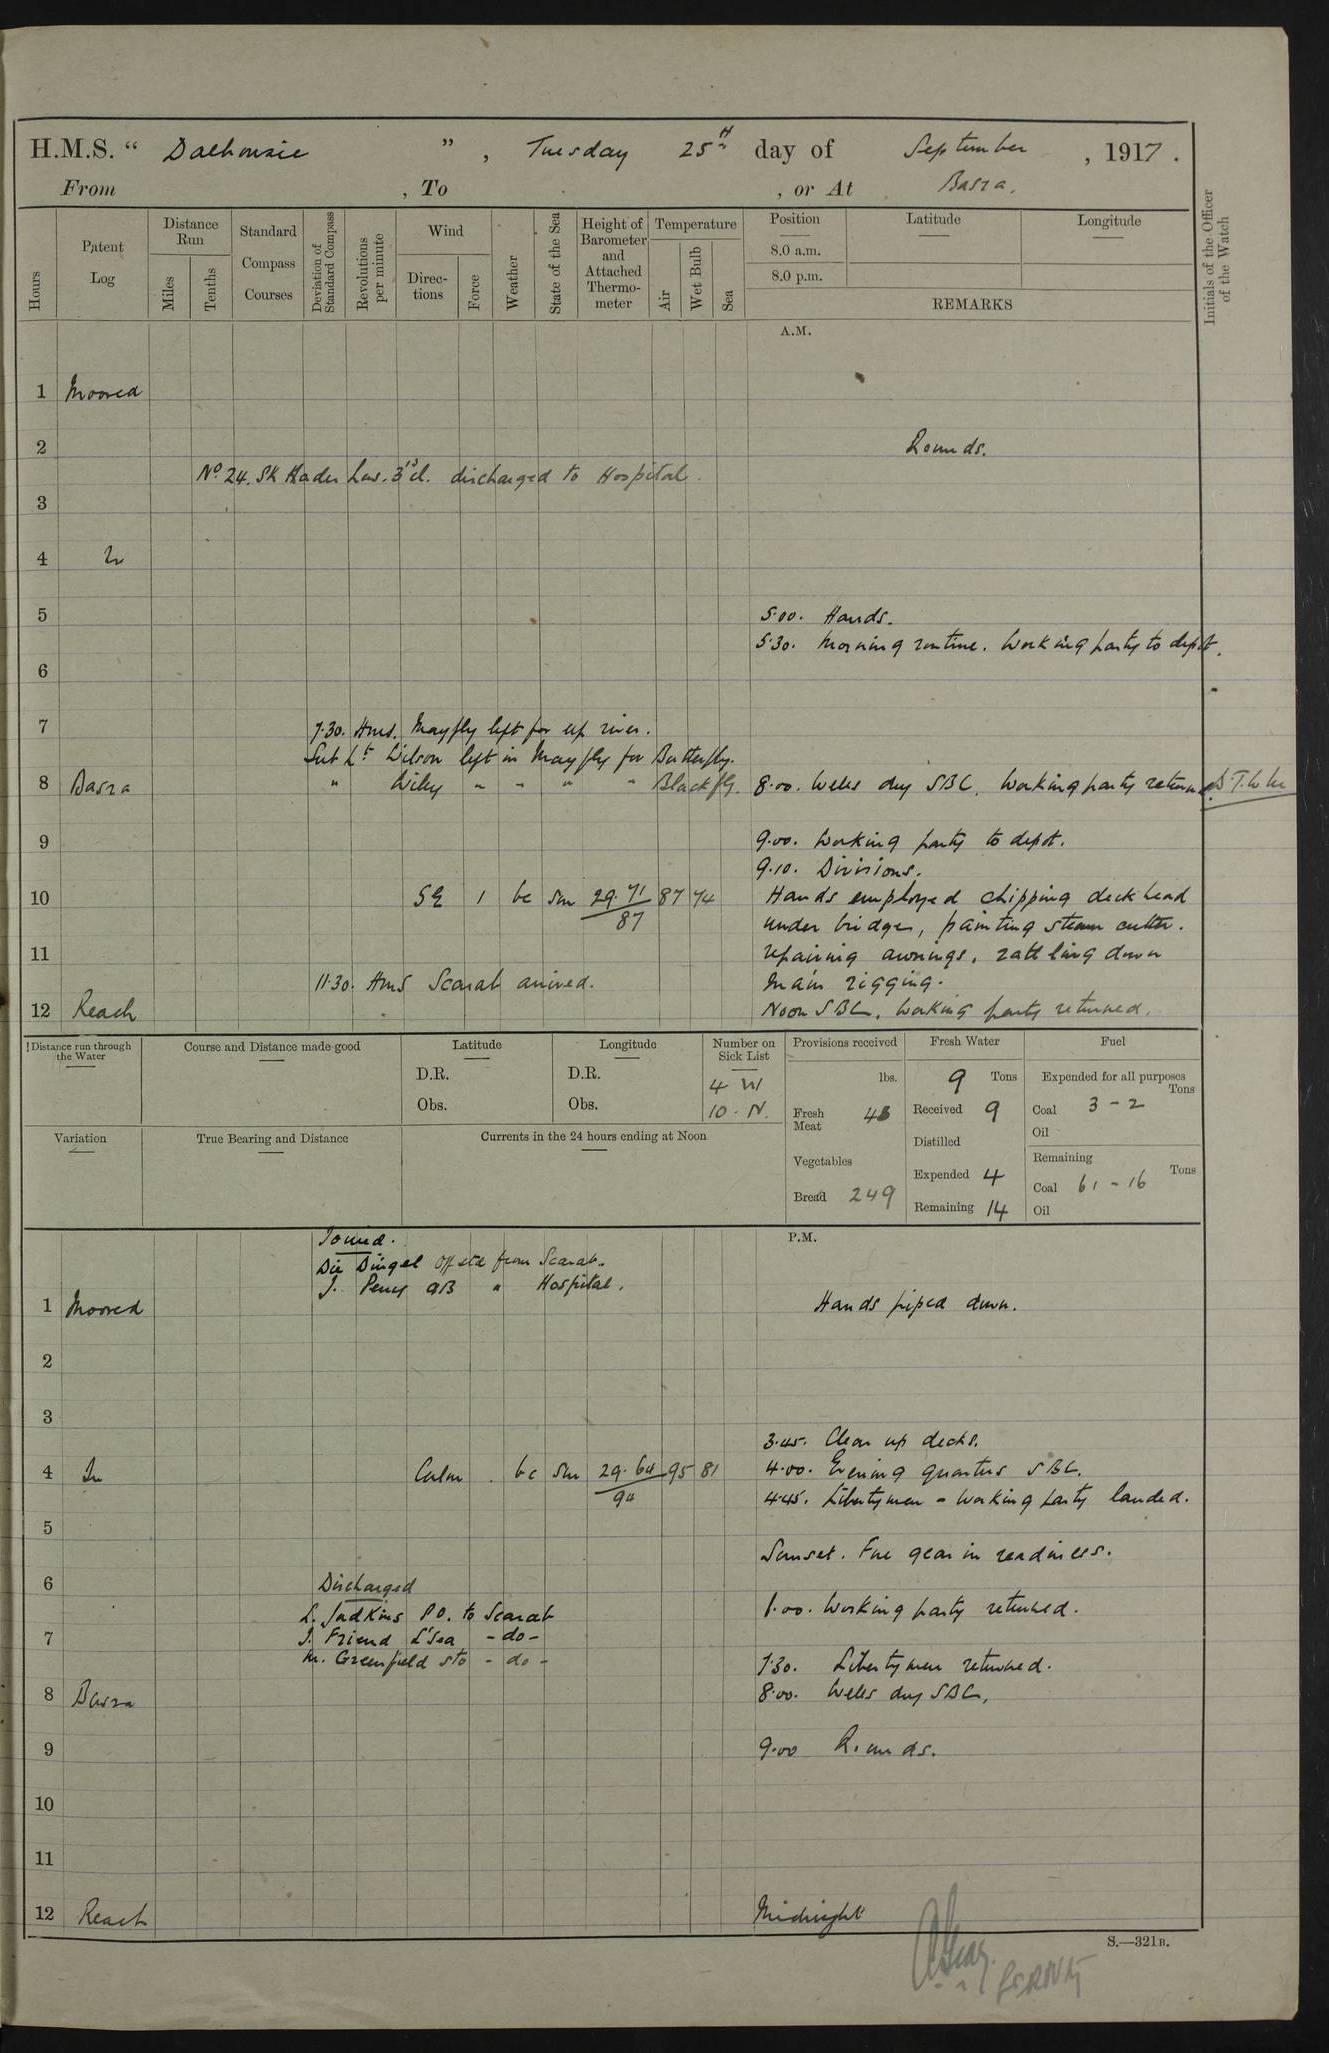 H.M.S. " Dalhousie " , Tuesday 25th day of September , 1917 .
From , To , or At Basra.
Hours
Patent Log
Distance Run
Miles
Tenths
Standard Compass Courses
Deviation of Standard Compass
Revolutions per minute
Wind
Directions
Force
Weather
State of the Sea
Height of Barometer and Attached Thermometer
Temperature
Air
Wet Bulb
Sea
Position
8.0 a.m.
8.0 p.m.
Latitude
Longitude
REMARKS
Initials of the Officer of the Watch
A.M.
1 Moored
2 Rounds.
No 24. SK Hader Las. 3rd cl. discharged to Hospital.
3
4 In
5 5.00. Hands.
5.30. Morning routine. Working party to depot.
6
7 7.30. Hms. Mayfly left for up river.
Sub Lt Wilson left in Mayfly for Butterfly.
8 Basra " Wiley " " " " Blackfly. 8.00. Wells dry SBC. Working party returned.
9 9.00. Working party to depot.
9.10. Divisions.
10 SE 1 bc Sm 29.71 87 74 Hands employed chipping deck head
87 under bridge, painting steam cutter.
11 repairing awnings, rattling down
11.30. Hms Scarab arrived. main rigging.
12 Reach Noon SBC, Working party returned.
Distance run through the Water
Course and Distance made good
Latitude
D.R.
Obs.
Longitude
D.R.
Obs.
Number on Sick List
4 W
10 . N.
Provisions received
lbs.
Fresh Meat 43
Vegetables
Bread 249
Fresh Water
9 Tons
Received 9
Distilled
Expended 4
Remaining 14
Fuel
Expended for all purposes
Tons
Coal 3 - 2
Oil
Remaining
Tons
Coal 61 - 16
Oil
Variation
True Bearing and Distance
Currents in the 24 hours ending at Noon
P.M.
Joined.
Din Dingel Off std from Scarab.
J. Percy AB " Hospital.
1 Moored Hands piped down.
2
3
3.45. Clear up decks.
4 In Calm . bc Sm 29.64 95 81 4.00. Evening quarters SBC.
94 4.45. Libertymen - Working party landed.
5
Sunset. Fire gear in readiness.
6 Discharged
L. Judkins P.O. to Scarab 6.00. Working party returned.
7 J. Friend L'Sea - do -
M. Greenfield Sto - do - 7.30. Libertymen returned.
8 Basra 8.00. Wells dry SBC.
9 9.00 Rounds.
10
11
12 Reach Midnight
S.—321B.